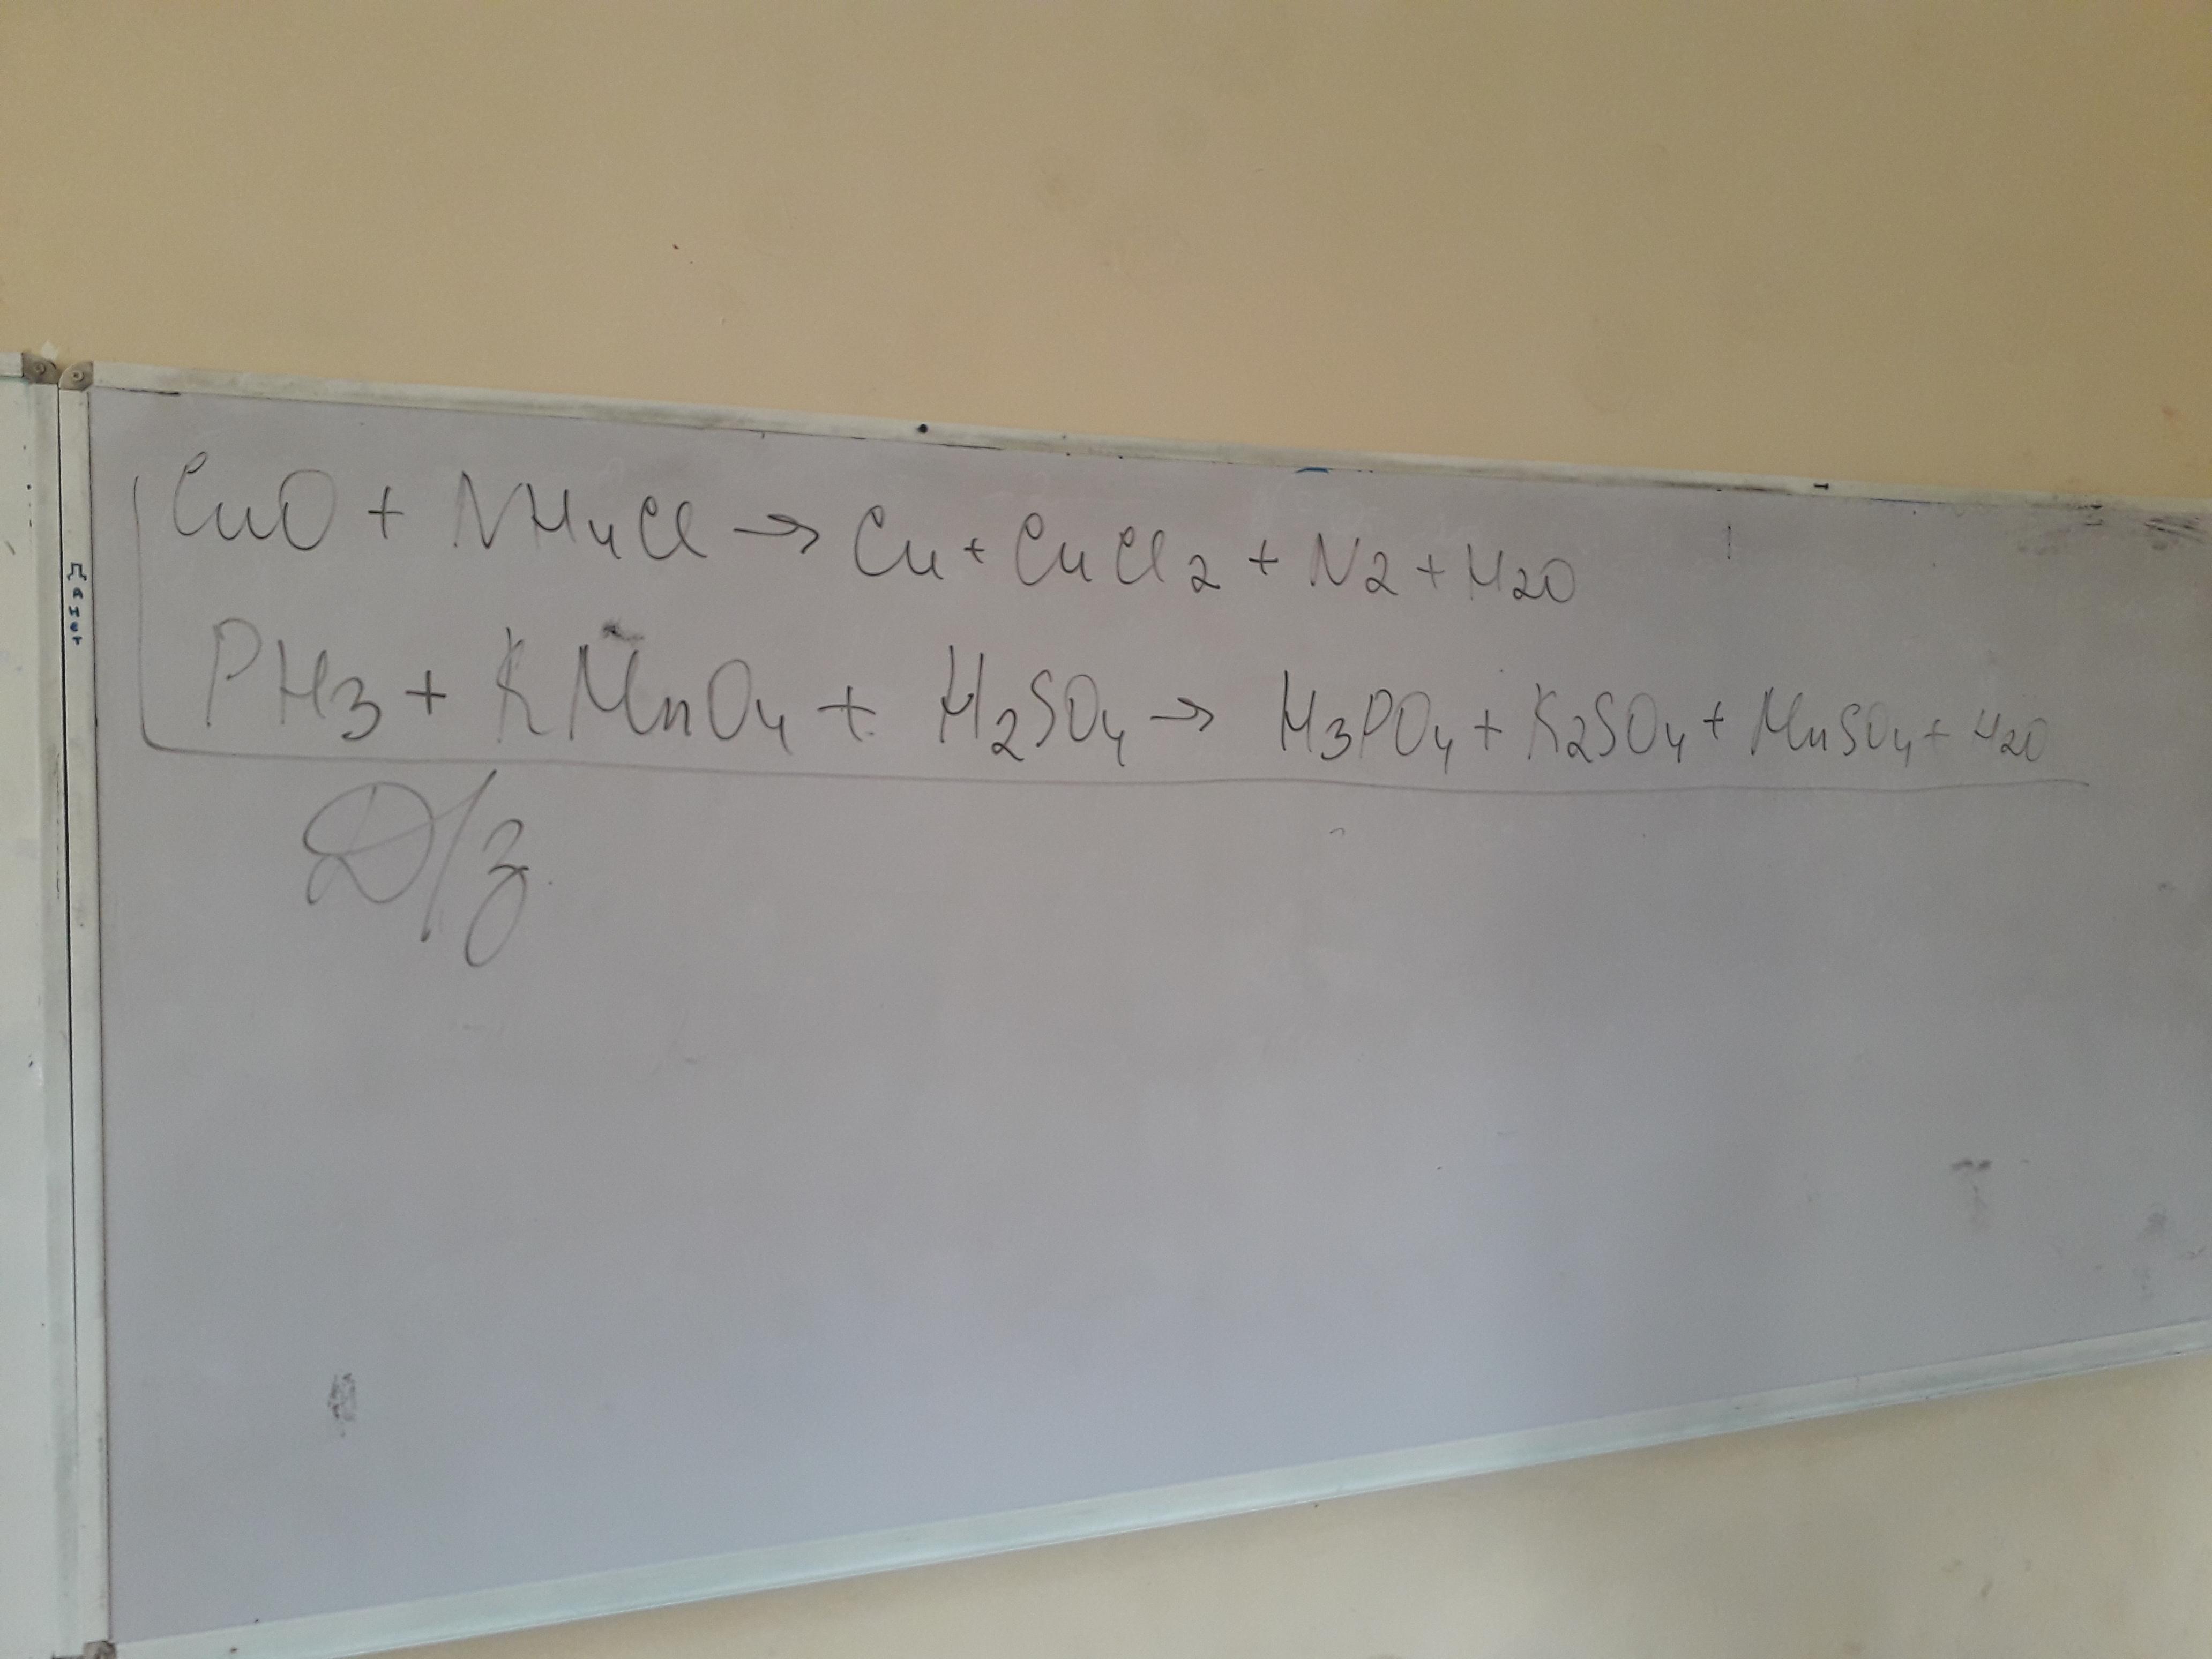 CuO + NH4Cl → Cu + CuCl2 + N2 + H2O
PH3 + KMnO4 + H2SO4 → H3PO4 + K2SO4 + MnSO4 + H2O
Д/з